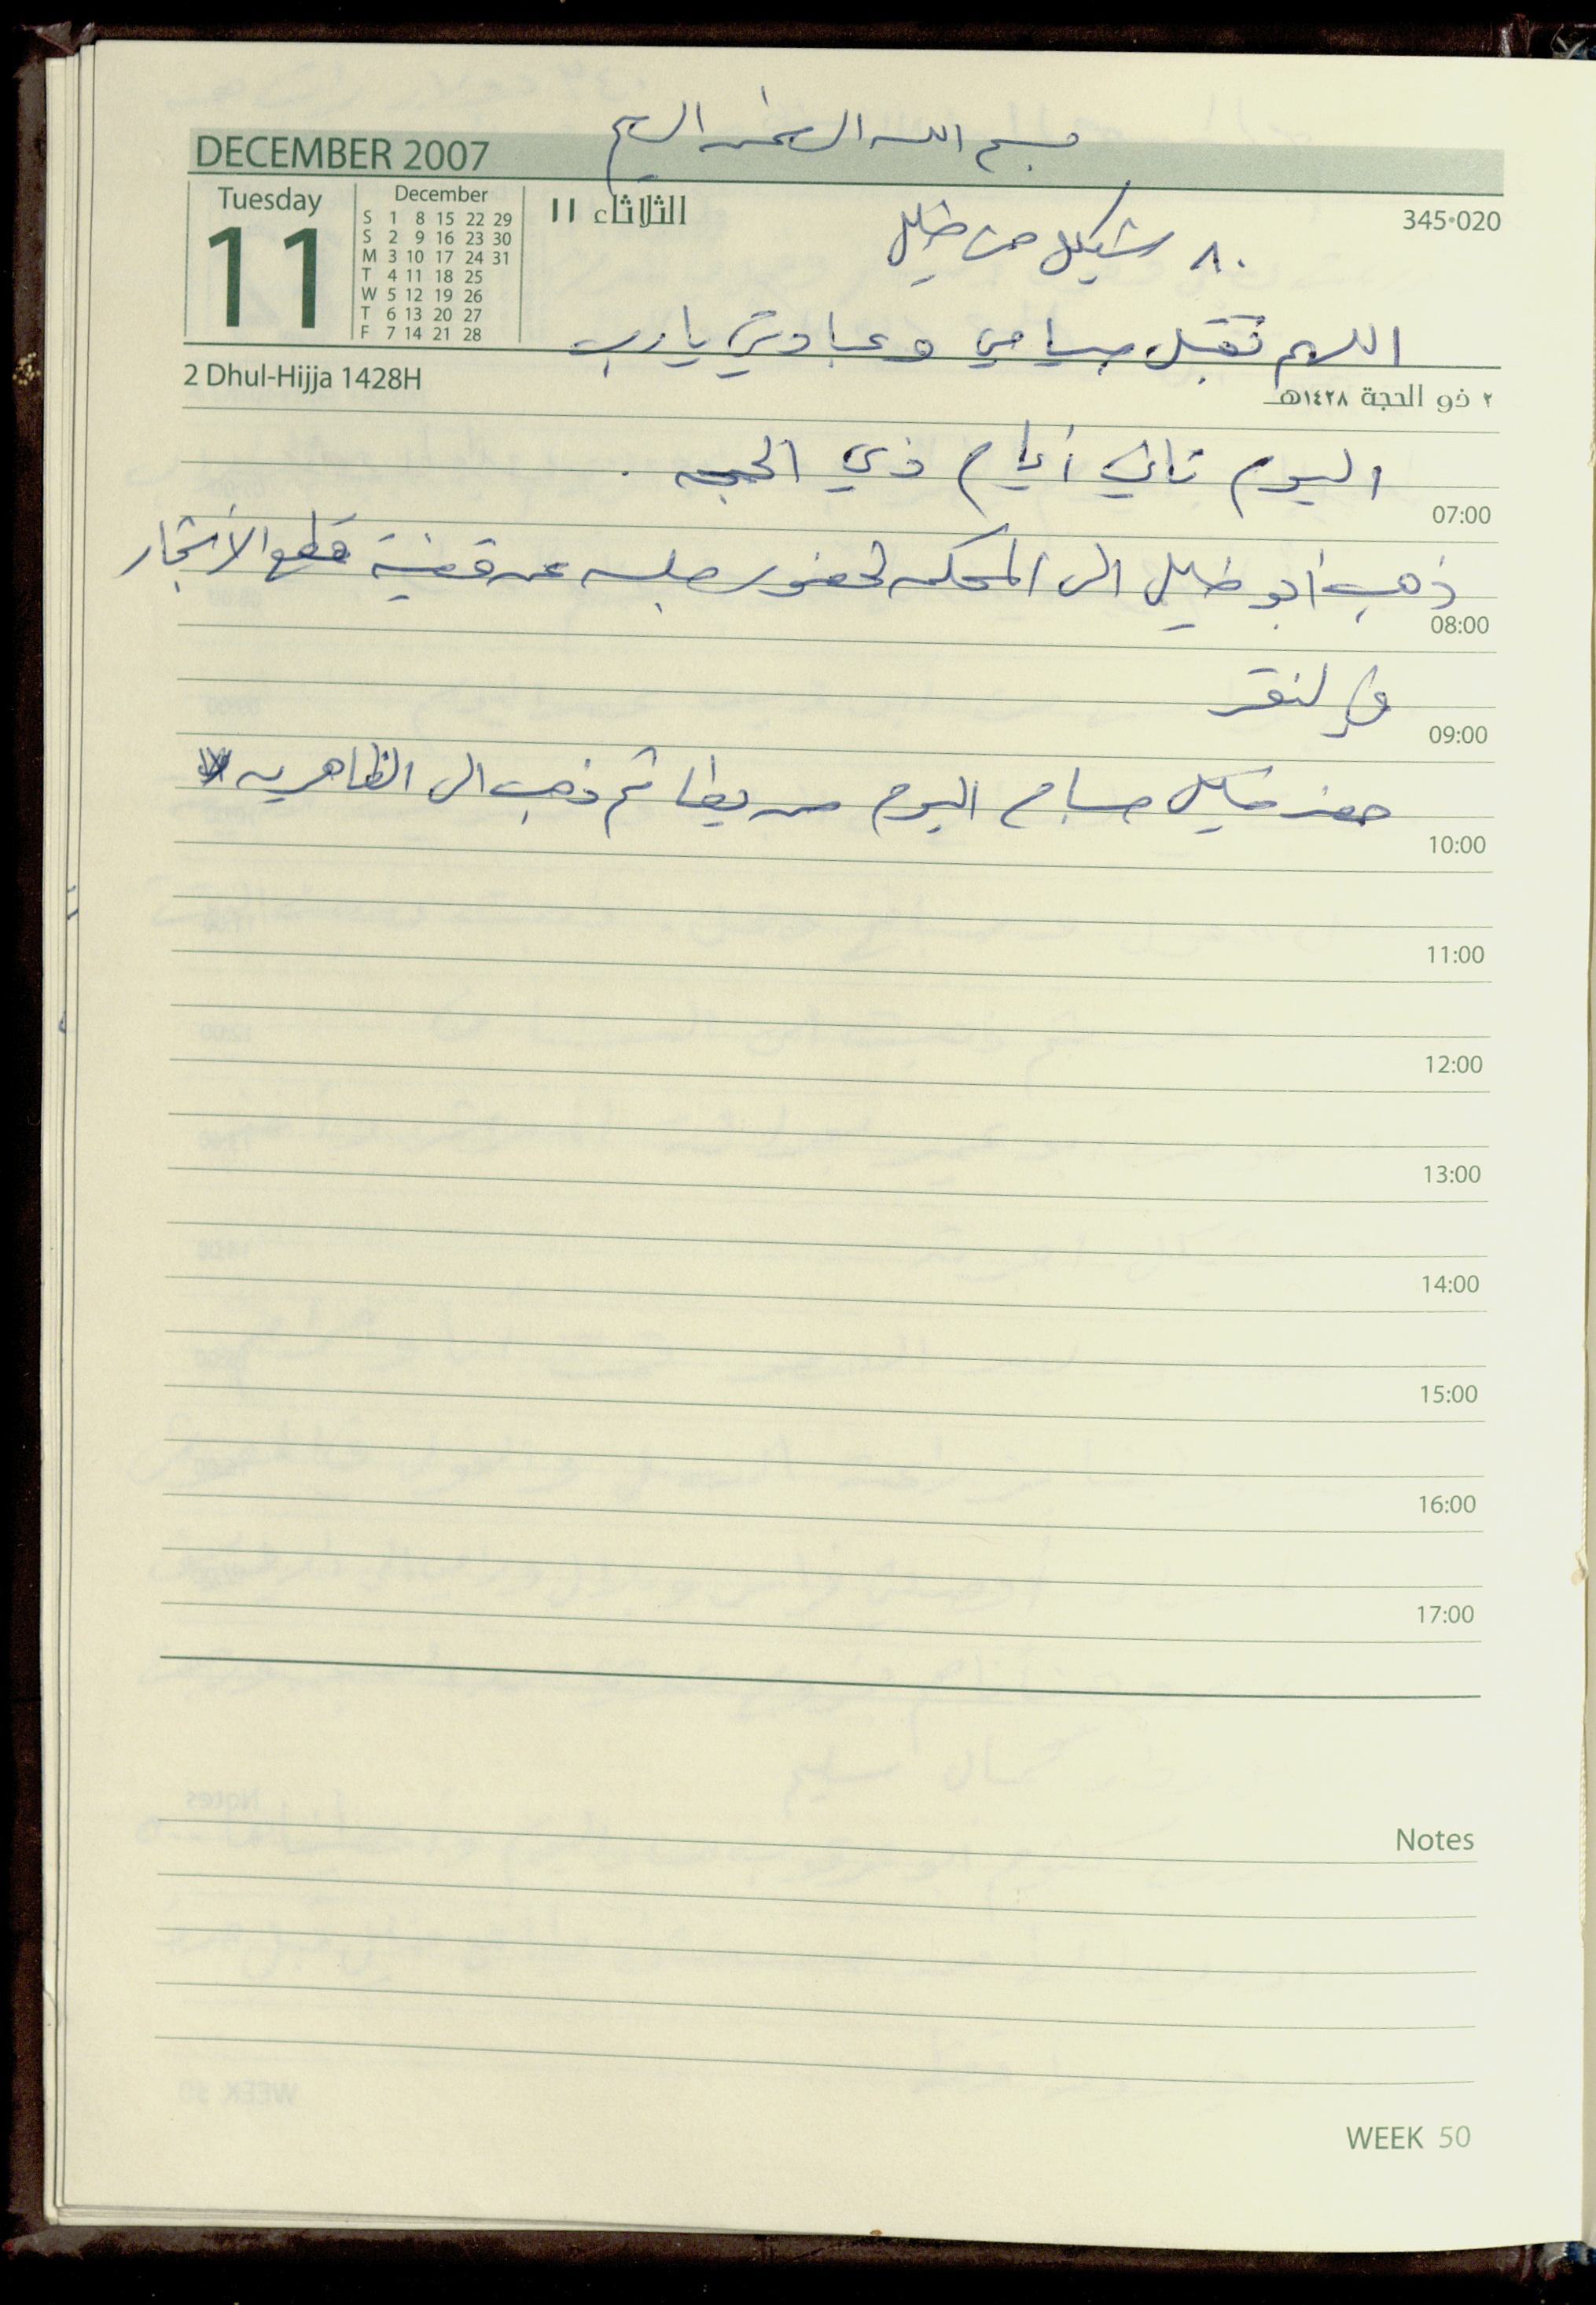 بسم الله الرحمن الرحيم
DECEMBER 2007
Tuesday
11
December
S 1 8 15 22 29
S 2 9 16 23 30
M 3 10 17 24 31
T 4 11 18 25
W 5 12 19 26
T 6 13 20 27
F 7 14 21 28
الثلاثاء ١١
345-020
٨٠ شيكل من خليل
اللهم تقبل صيامي وعبادتي يارب
2 Dhul-Hijja 1428H
٢ ذو الحجة ١٤٢٨هـ
اليوم ثاني أيام ذي الحجه .
07:00
ذهب أبو خليل الى المحكمه لحضور جلسه عن قضية قطع الأشجار
08:00
في
09:00
حضر خليل صباح اليوم من يطا ثم ذهب الى الظاهريه
10:00
11:00
12:00
13:00
14:00
15:00
16:00
17:00
Notes
WEEK 50